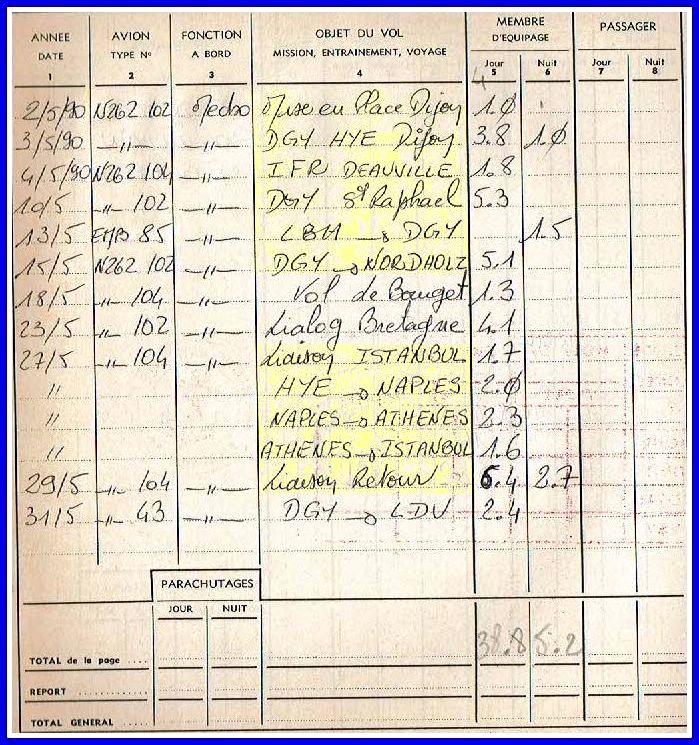 ANNEE AVION FONCTION OBJET DU VOL MEMBRE D'EQUIPAGE PASSAGER
DATE TYPE N° A BORD MISSION, ENTRAINEMENT, VOYAGE Jour Nuit Jour Nuit
1 2 3 4 5 6 7 8
2/5/90 N262 102 Mecbo Mise en Place Dijon 1.0
3/5/90 -"- -"- DGY HYE Dijon 3.8 1.0
4/5/90 N262 104 -"- IFR DEAUVILLE 1.8
10/5 -"- 102 -"- DGY St Raphael 5.3
13/5 EMB 85 -"- LBH → DGY 1.5
15/5 N262 102 -"- DGY → NORDHOLZ 5.1
18/5 -"- 104 -"- Vol de Bourget 1.3
23/5 -"- 102 -"- Lialog Bretagne 4.1
27/5 -"- 104 -"- Liaison ISTANBUL 1.7
" HYE → NAPLES 2.0
" NAPLES → ATHENES 2.3
" ATHENES → ISTANBUL 1.6
29/5 -"- 104 -"- Liaison Retour 6.4 2.7
31/5 -"- 43 -"- DGY → LDV 2.4
PARACHUTAGES
JOUR NUIT
TOTAL de la page .... 38.8 5.2
REPORT ............
TOTAL GENERAL ....